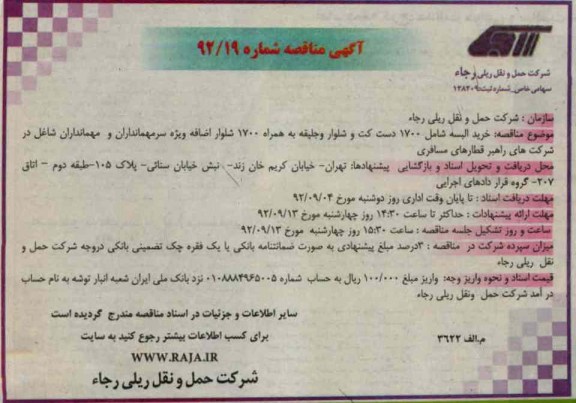 آگهی مناقصه شماره ۹۲/۱۹
شرکت حمل و نقل ریلی رجاء
سهامی خاص_شماره ثبت:۱۲۸۴۰۹
سازمان : شرکت حمل و نقل ریلی رجاء
موضوع مناقصه: خرید البسه شامل ۱۷۰۰ دست کت و شلوار وجلیقه به همراه ۱۷۰۰ شلوار اضافه ویژه سرمهمانداران و مهمانداران شاغل در
شرکت های راهبر قطارهای مسافری
محل دریافت و تحویل اسناد و بازگشایی پیشنهادها: تهران- خیابان کریم خان زند- نبش خیابان سنائی- پلاک ۱۰۵-طبقه دوم - اتاق
۲۰۷- گروه قرار دادهای اجرایی
مهلت دریافت اسناد : تا پایان وقت اداری روز دوشنبه مورخ ۹۲/۰۹/۰۴
مهلت ارائه پیشنهادات : حداکثر تا ساعت ۱۴:۳۰ روز چهارشنبه مورخ ۹۲/۰۹/۱۳
ساعت و روز تشکیل جلسه مناقصه : ساعت ۱۵:۳۰ روز چهارشنبه مورخ ۹۲/۰۹/۱۳
میزان سپرده شرکت در مناقصه : ۳درصد مبلغ پیشنهادی به صورت ضمانتنامه بانکی یا یک فقره چک تضمینی بانکی دروجه شرکت حمل و
نقل ریلی رجاء
قیمت اسناد و نحوه واریز وجه: واریز مبلغ ۱۰۰/۰۰۰ ریال به حساب شماره ۰۱۰۸۸۸۴۹۶۵۰۰۵ نزد بانک ملی ایران شعبه انبار توشه به نام حساب
در آمد شرکت حمل ونقل ریلی رجاء
سایر اطلاعات و جزئیات در اسناد مناقصه مندرج گردیده است
برای کسب اطلاعات بیشتر رجوع کنید به سایت
م.الف ۳۶۲۲
WWW.RAJA.IR
شرکت حمل و نقل ریلی رجاء